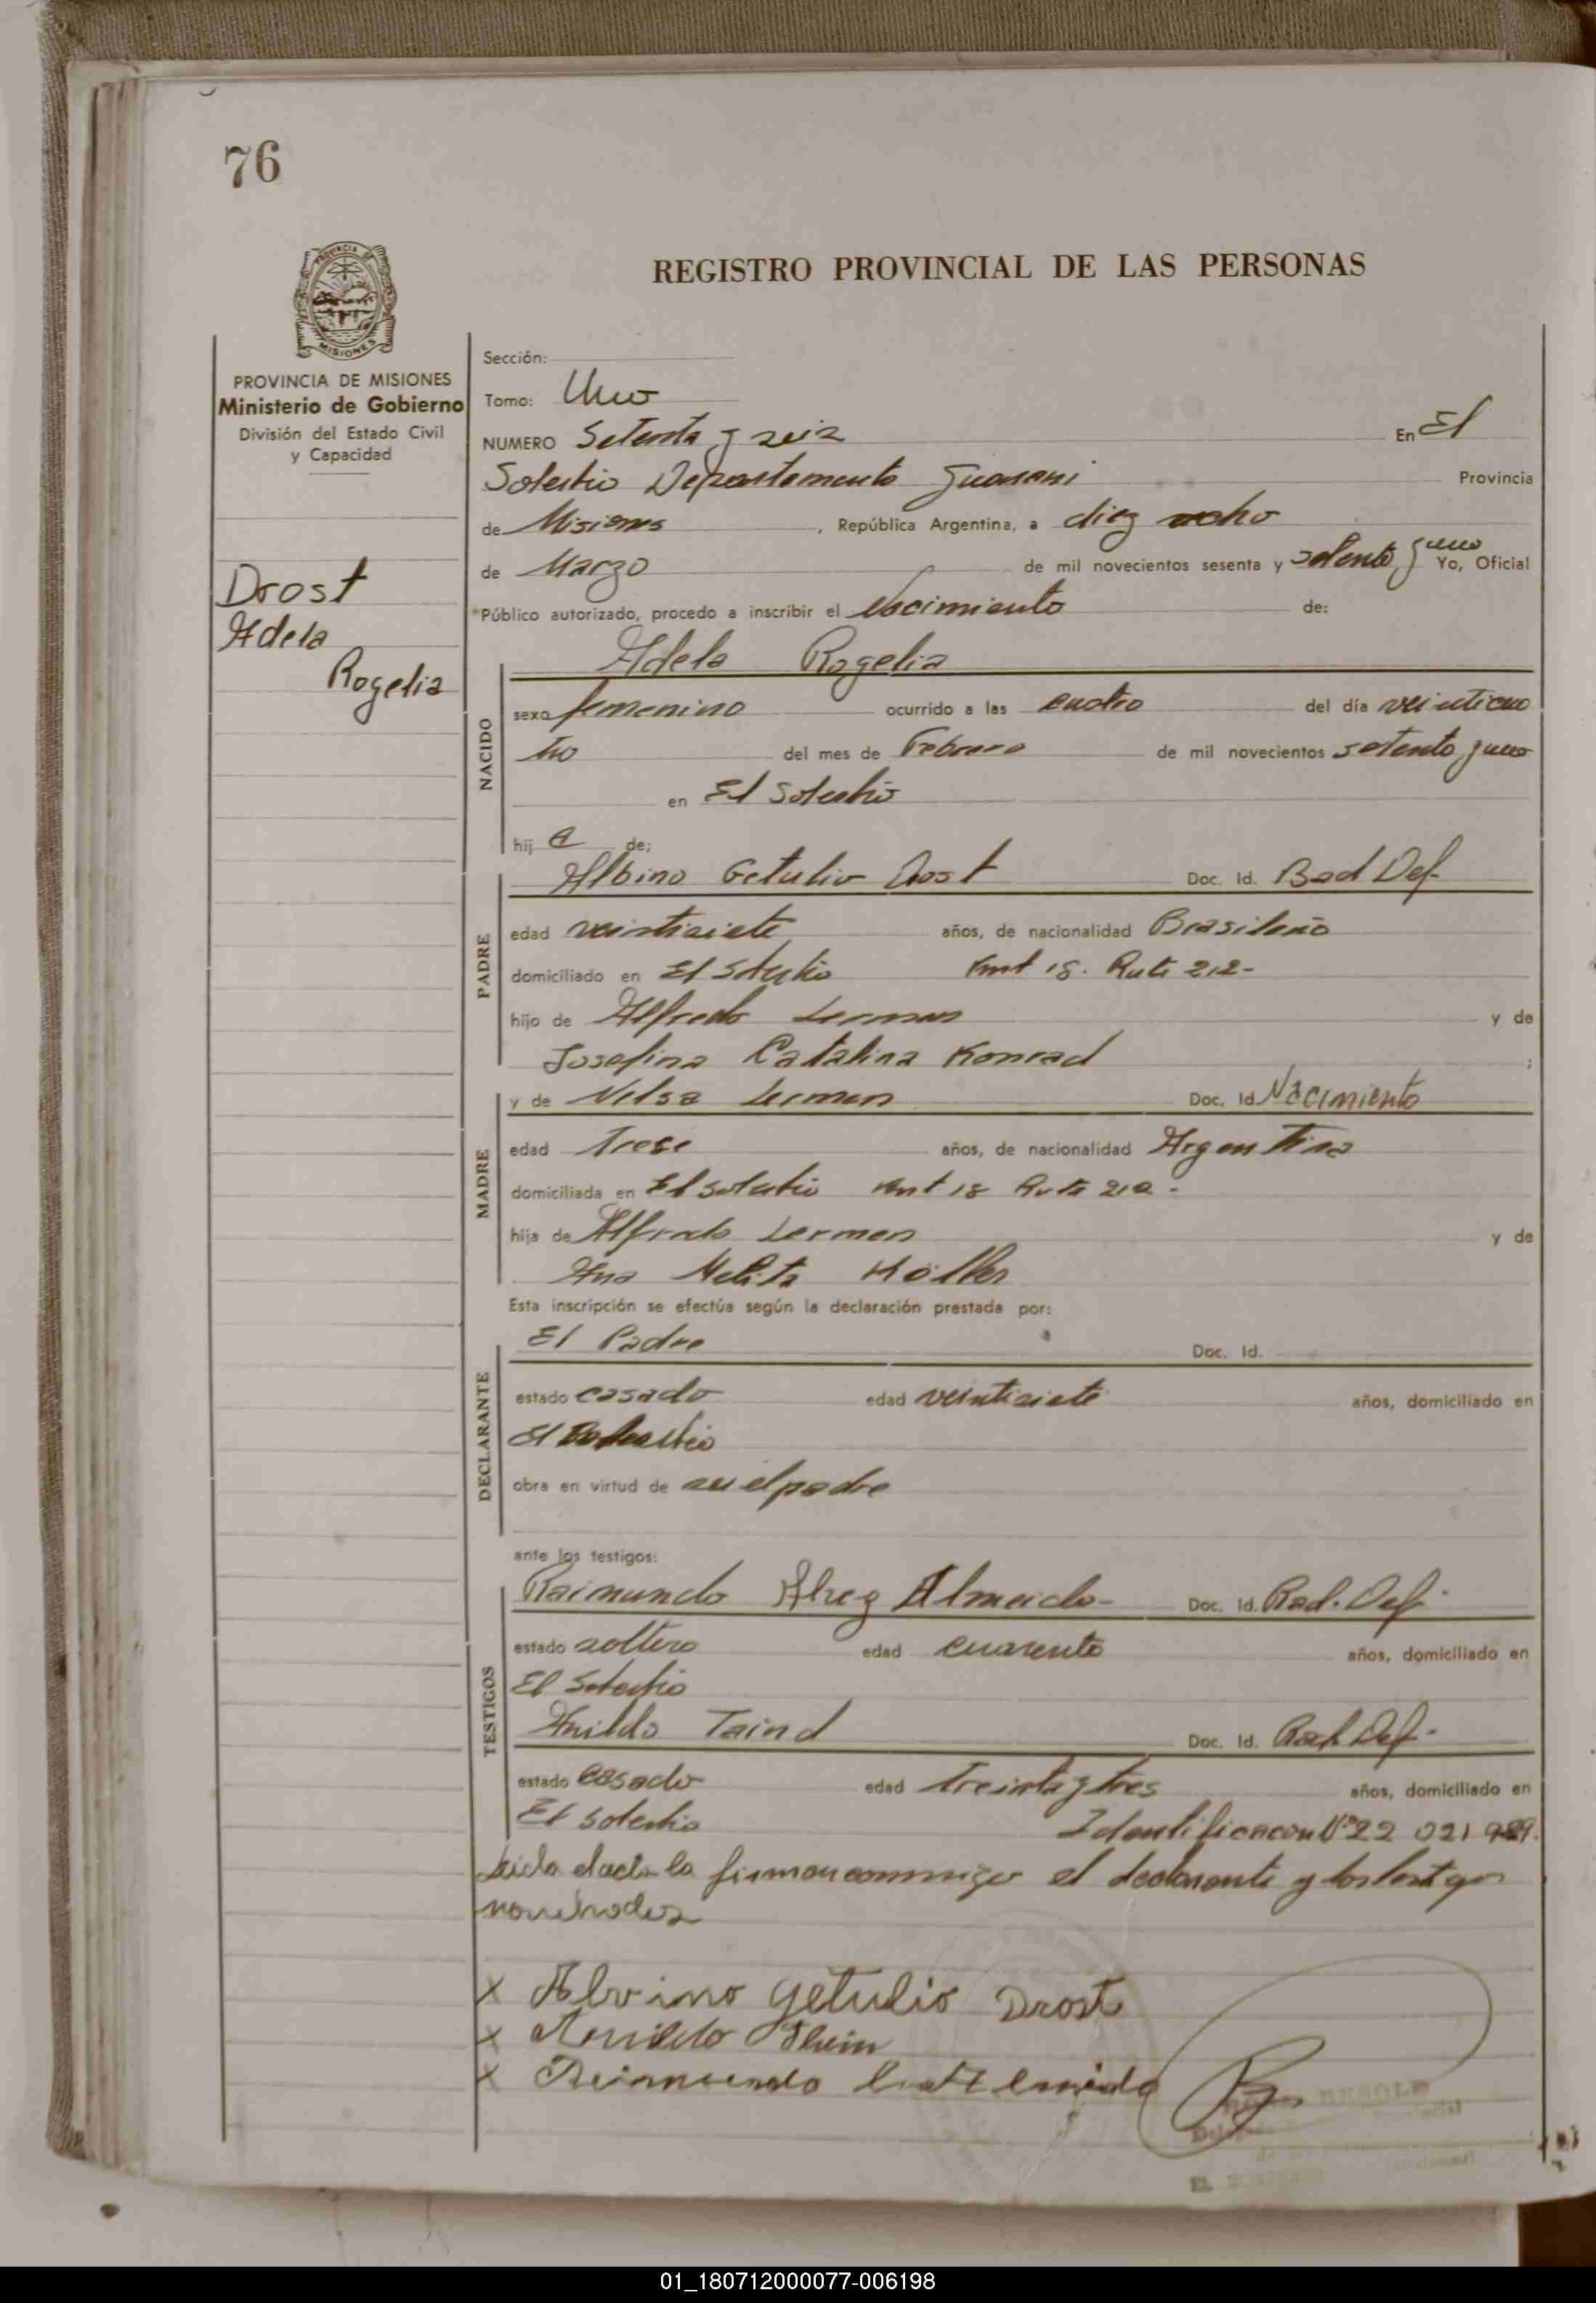 76
REGISTRO PROVINCIAL DE LAS PERSONAS
PROVINCIA DE MISIONES
Ministerio de Gobierno
División del Estado Civil
y Capacidad
Drost
Adela
Rogelia
Sección:
Tomo: Uno
NUMERO Setenta y seis En El
Soberbio Departamento Guarani Provincia
de Misiones, República Argentina, a diez ocho
de Marzo de mil novecientos sesenta y setenta y uno Yo, Oficial
Público autorizado, procedo a inscribir el Nacimiento de:
NACIDO
Adela Rogelia
sexo femenino ocurrido a las cuatro del día veinticua
tro del mes de Febrero de mil novecientos setenta y uno
en El Soberbio
hij a de;
PADRE
Albino Getulio Drost Doc. Id. Bad Def.
edad veintisiete años, de nacionalidad Brasileño
domiciliado en El Soberbio Kmt 18. Ruta 212-
hijo de Alfredo Lerman y de
Josefina Catalina Konrad ;
MADRE
y de Nelsa Lermen Doc. Id. Nacimiento
edad Trese años, de nacionalidad Argentina
domiciliada en El Soberbio Kmt 18 Ruta 212-
hija de Alfredo Lermen y de
Ana Melita Köller
Esta inscripción se efectúa según la declaración prestada por:
DECLARANTE
El Padre Doc. Id.
estado casado edad veintisiete años, domiciliado en
El Soberbio
obra en virtud de ser el padre
ante los testigos:
TESTIGOS
Raimundo Almeida- Doc. Id. Rad. Def.
estado soltero edad cuarenta años, domiciliado en
El Soberbio
Anildo Taind Doc. Id. Rad. Def.
estado casado edad Treinta y tres años, domiciliado en
El Soberbio Identificacion Nº 22 021 989.
Leida el acta la firman conmigo el declarante y los testigos
nombrados
x Alvino Getulio Drost
x Anildo Thein
x Raimundo Almeida
01_180712000077-006198